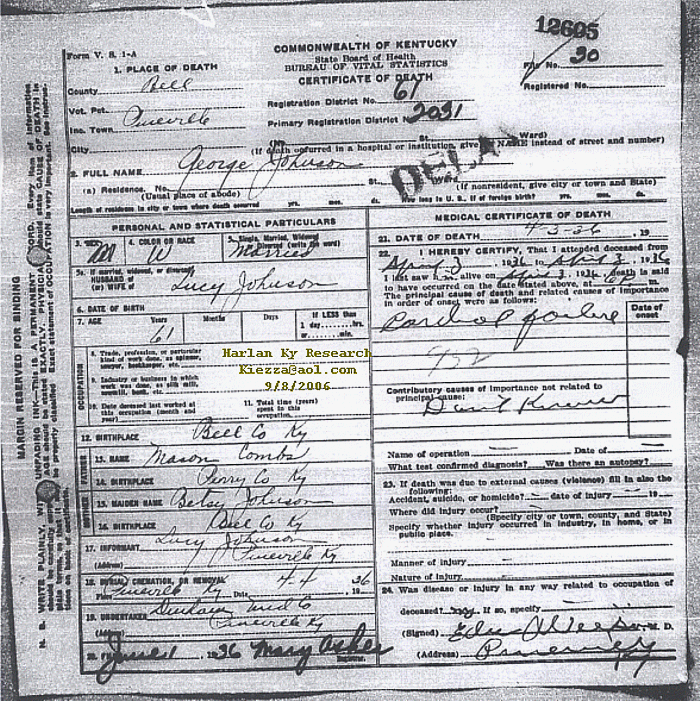 12605
Form V. S. 1-A
COMMONWEALTH OF KENTUCKY
State Board of Health
BUREAU OF VITAL STATISTICS
CERTIFICATE OF DEATH
File No. 30
Registered No.
1. PLACE OF DEATH
County Bell
Vot. Pct.
Inc. Town Pineville
City
Registration District No. 61
Primary Registration District No. 2031
(No. St. Ward)
(If death occurred in a hospital or institution, give NAME instead of street and number)
2. FULL NAME George Johnson
(a) Residence. No. St.
(Usual place of abode)
(If nonresident, give city or town and State)
Length of residence in city or town where death occurred yrs. mos. ds. How long in U. S., if of foreign birth? yrs. mos. ds.
DELAY
MARGIN RESERVED FOR BINDING
PERSONAL AND STATISTICAL PARTICULARS
3. SEX M
4. COLOR OR RACE W
5. Single, Married, Widowed or Divorced (write the word) Married
5a. If married, widowed, or divorced
HUSBAND of
(or) WIFE of Lucy Johnson
6. DATE OF BIRTH
7. AGE Years Months Days If LESS than
1 day......hrs.
or......min.
61
OCCUPATION
8. Trade, profession, or particular
kind of work done, as spinner,
sawyer, bookkeeper, etc.
9. Industry or business in which
work was done, as silk mill,
sawmill, bank, etc.
10. Date deceased last worked at
this occupation (month and
year)
11. Total time (years)
spent in this
occupation
Harlan Ky Research
Kiezza@aol.com
9/8/2006
12. BIRTHPLACE Bell Co Ky
FATHER
13. NAME Mason Combs
14. BIRTHPLACE Perry Co Ky
MOTHER
15. MAIDEN NAME Betsy Johnson
16. BIRTHPLACE Bell Co Ky
17. INFORMANT Lucy Johnson
(Address) Pineville Ky
18. BURIAL, CREMATION, OR REMOVAL
Place Pineville Ky Date 4 4 1936
19. UNDERTAKER
(Address) Pineville Ky
20. Filed June 1, 1936 Mary Asher
Registrar.
MEDICAL CERTIFICATE OF DEATH
21. DATE OF DEATH 4-3-36, 19
22. I HEREBY CERTIFY, That I attended deceased from
April 3 1936 to April 3, 1936
I last saw him alive on April 3, 1936, death is said
to have occurred on the date stated above, at 6P m.
The principal cause of death and related causes of importance
in order of onset were as follows:
Date of
onset
Cardiac failure
Contributory causes of importance not related to
principal cause:
Name of operation — Date of —
What test confirmed diagnosis? Was there an autopsy?
23. If death was due to external causes (violence) fill in also the
following:
Accident, suicide, or homicide? — date of injury — 19 —
Where did injury occur?
(Specify city or town, county, and State)
Specify whether injury occurred in industry, in home, or in
public place.
Manner of injury
Nature of injury
24. Was disease or injury in any way related to occupation of
deceased? If so, specify
(Signed) M. D.
(Address) Pineville Ky